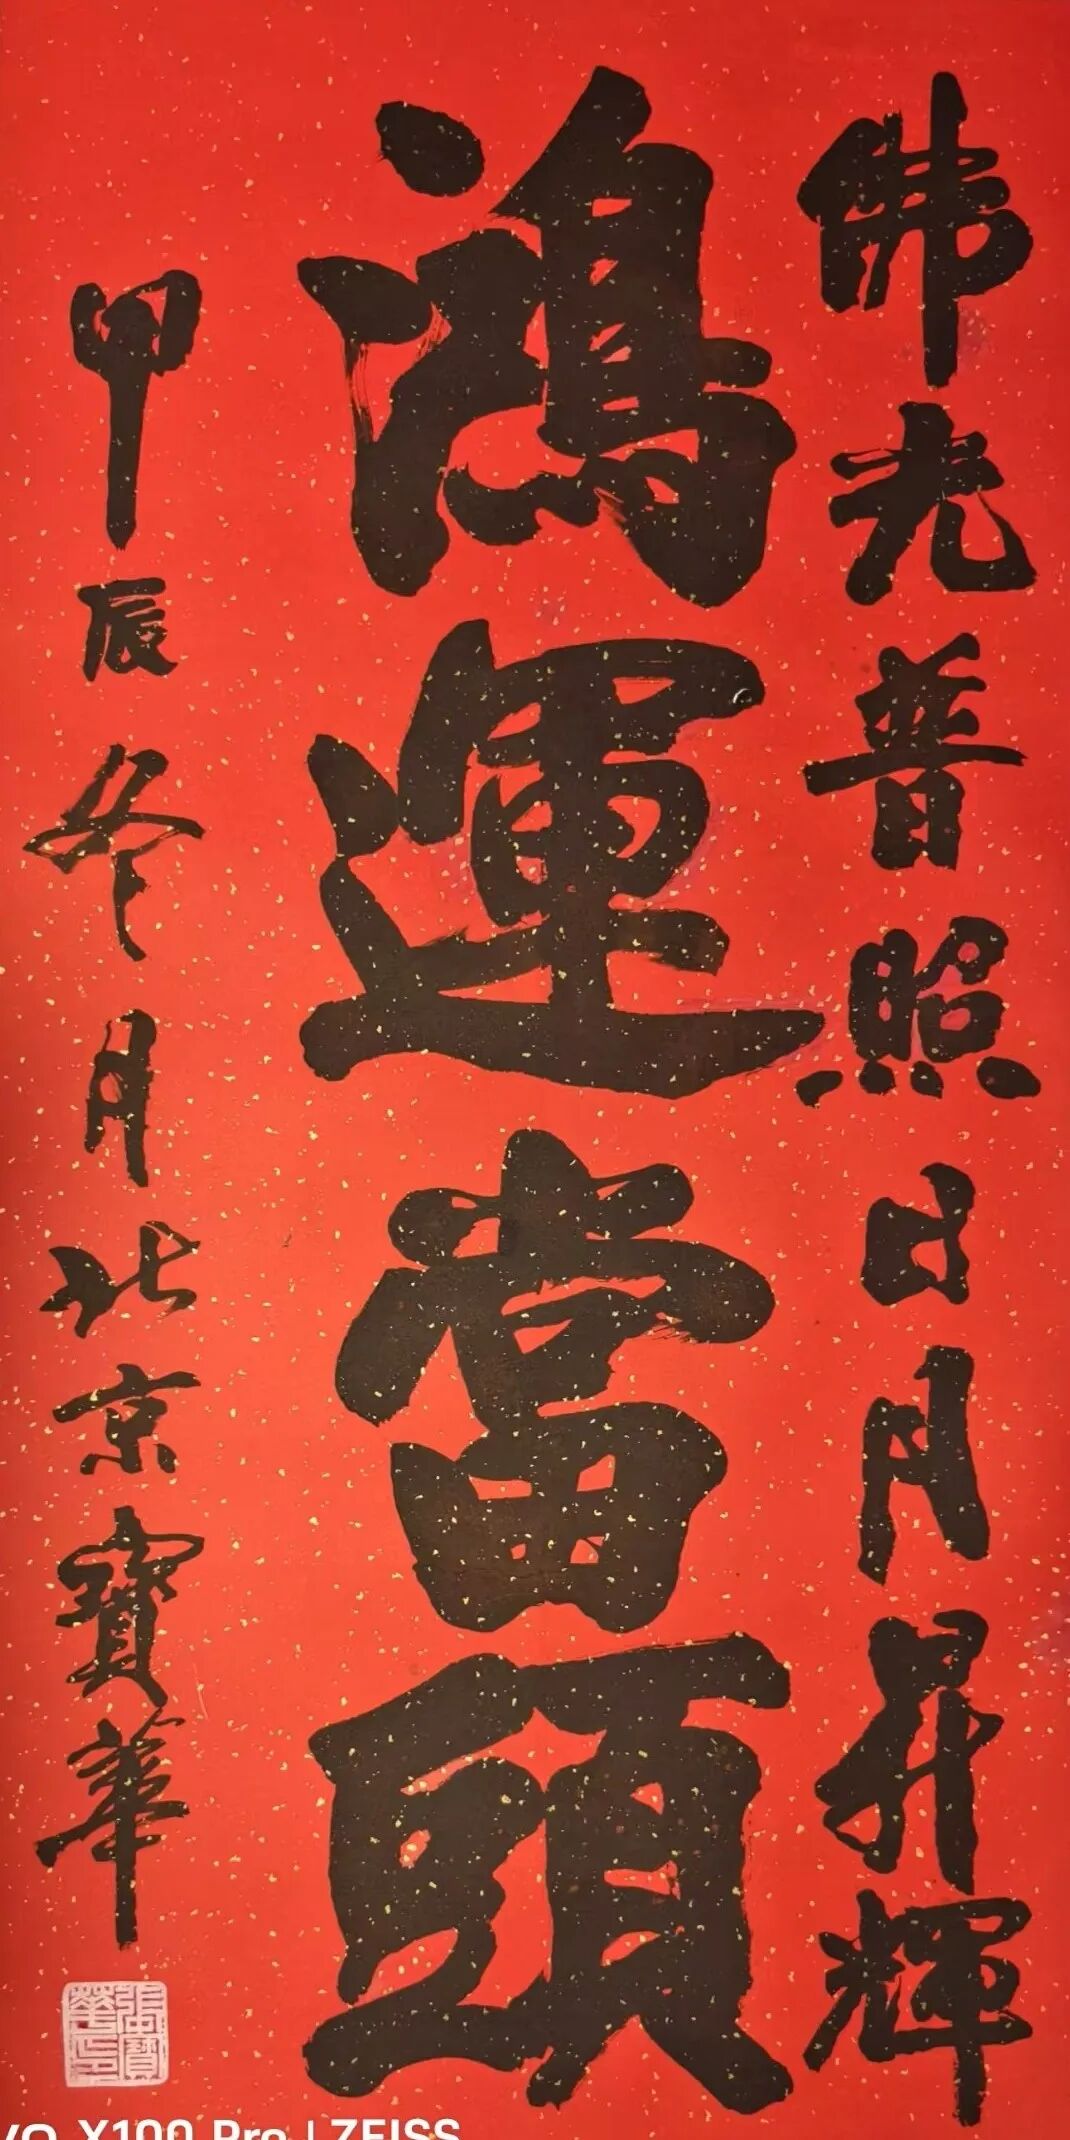 佛光普照日月昇輝
鴻運當頭
甲辰冬月北京寶華
張寶華印
X100 Pro | ZEISS